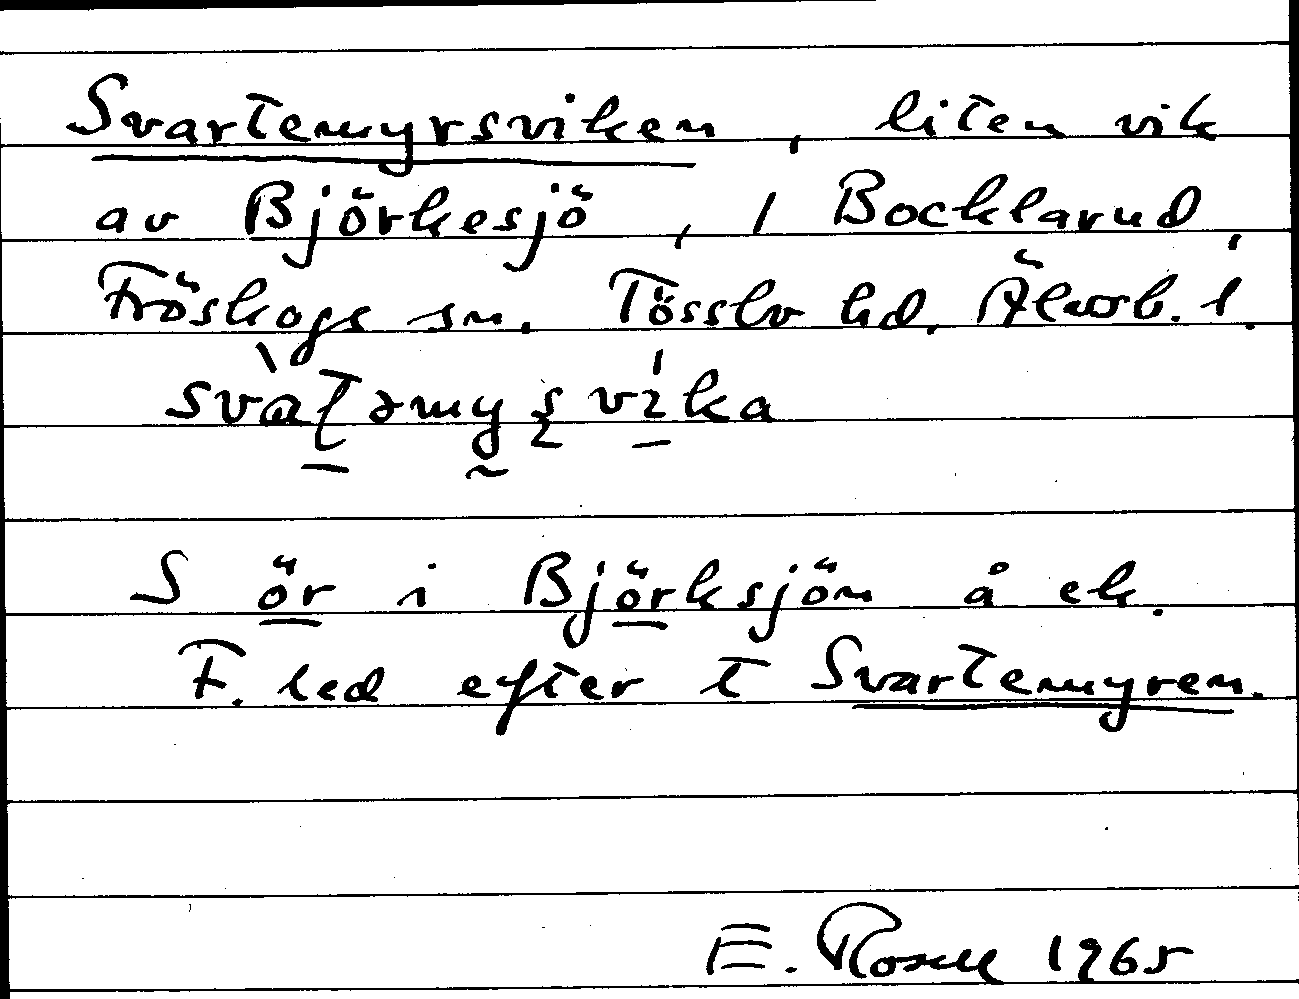 Svartemyrsviken, liten vik
av Björkesjö, 1 Bocklarud,
Fröskogs sn. Tösslv hd. Älvsb. l.
svàʈəmyʂvíka
S ör i Björksjön å ek.
F. led efter t Svartemyren.
E. Rosell 1965